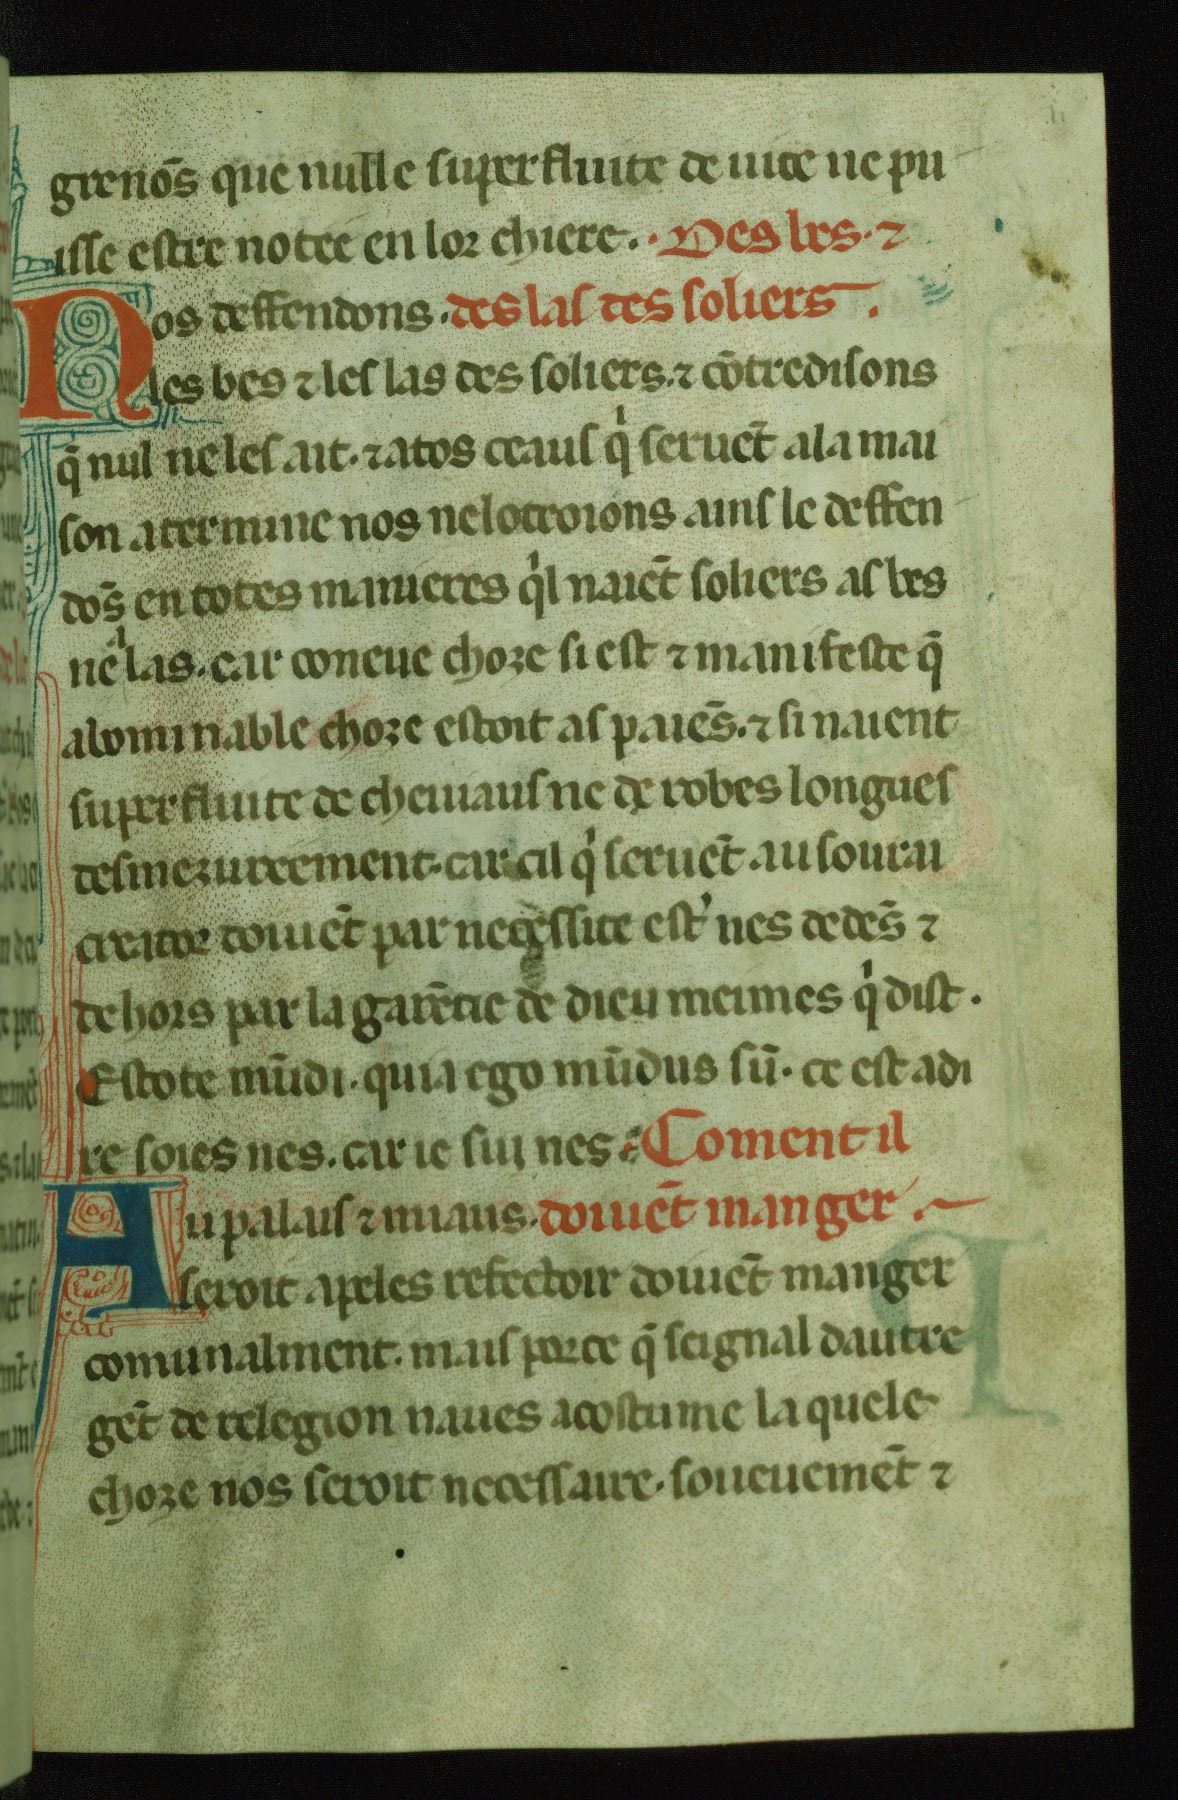 grenōs que nulle superfluite de uite ne pu
isse estre notee en lor chiere. Des bes. ⁊
Nos deffendons. des las des soliers.
les bes ⁊ les las des soliers. ⁊ cōtredisons
q̄ nul ne les ait. ⁊ a tos ceaus qͥ seruēt a la mai
son a termine nos ne lotroions ains le deffen
dōs en totes manieres qͥl naiēt soliers as bes
ne las. car coneue choze si est ⁊ manifeste q̄
abominable choze estoit as paiēs. ⁊ si naient
superfluite de cheuiaus ne de robes longues
desmezureement. car cil qͥ seruēt au sourai
creator doiuēt par necessite estʼ nes dedēs ⁊
dehors par la garētie de dieu meimes qͥ dist.
Estote mūdi. quia ego mūdus sū. ce est a di
re soies nes. car ie sui nes. Coment il
Au palais ⁊ miaus. doiuēt manger.
seroit apeles refectoir doiuēt manger
comunalment. mais por ce q̄ seignal dautre
gēt de relegion naues acostume la quele
choze nos seroit necessaire. soueuemēt ⁊